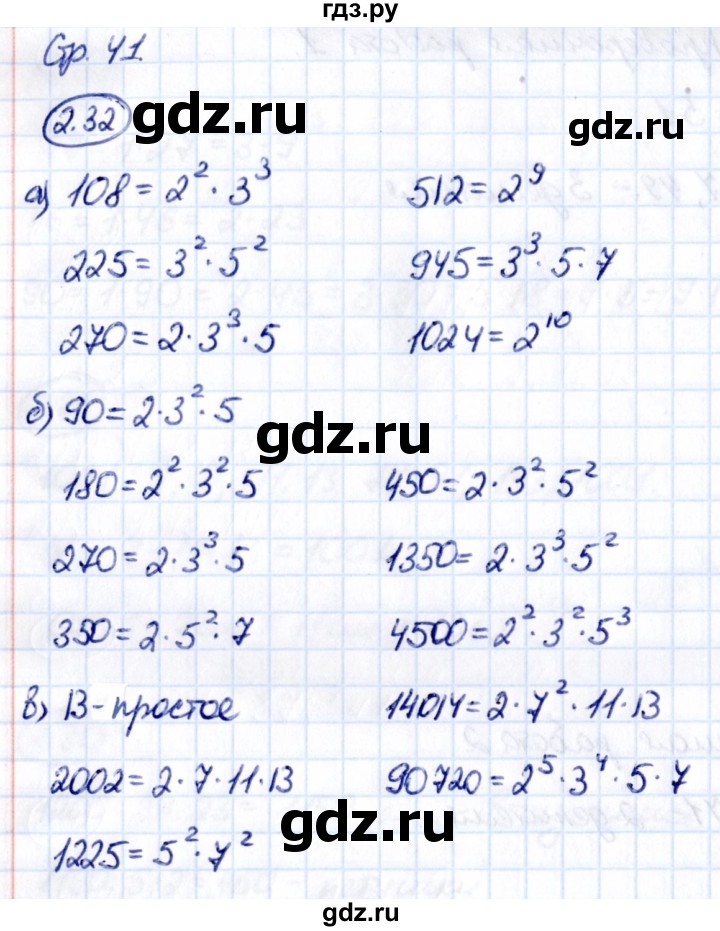 гдз.ру
Стр. 41.
2.32 gdz.ru gdz.ru
а) 108 = 2² · 3³ 512 = 2⁹
225 = 3² · 5² 945 = 3³ · 5 · 7
270 = 2 · 3³ · 5 1024 = 2¹⁰
б) 90 = 2 · 3² · 5 gdz.ru
180 = 2² · 3² · 5 450 = 2 · 3² · 5²
270 = 2 · 3³ · 5 1350 = 2 · 3³ · 5²
350 = 2 · 5² · 7 4500 = 2² · 3² · 5³
в) 13 - простое 14014 = 2 · 7² · 11 · 13
2002 = 2 · 7 · 11 · 13 90720 = 2⁵ · 3⁴ · 5 · 7
1225 = 5² · 7² gdz.ru
gdz.ru